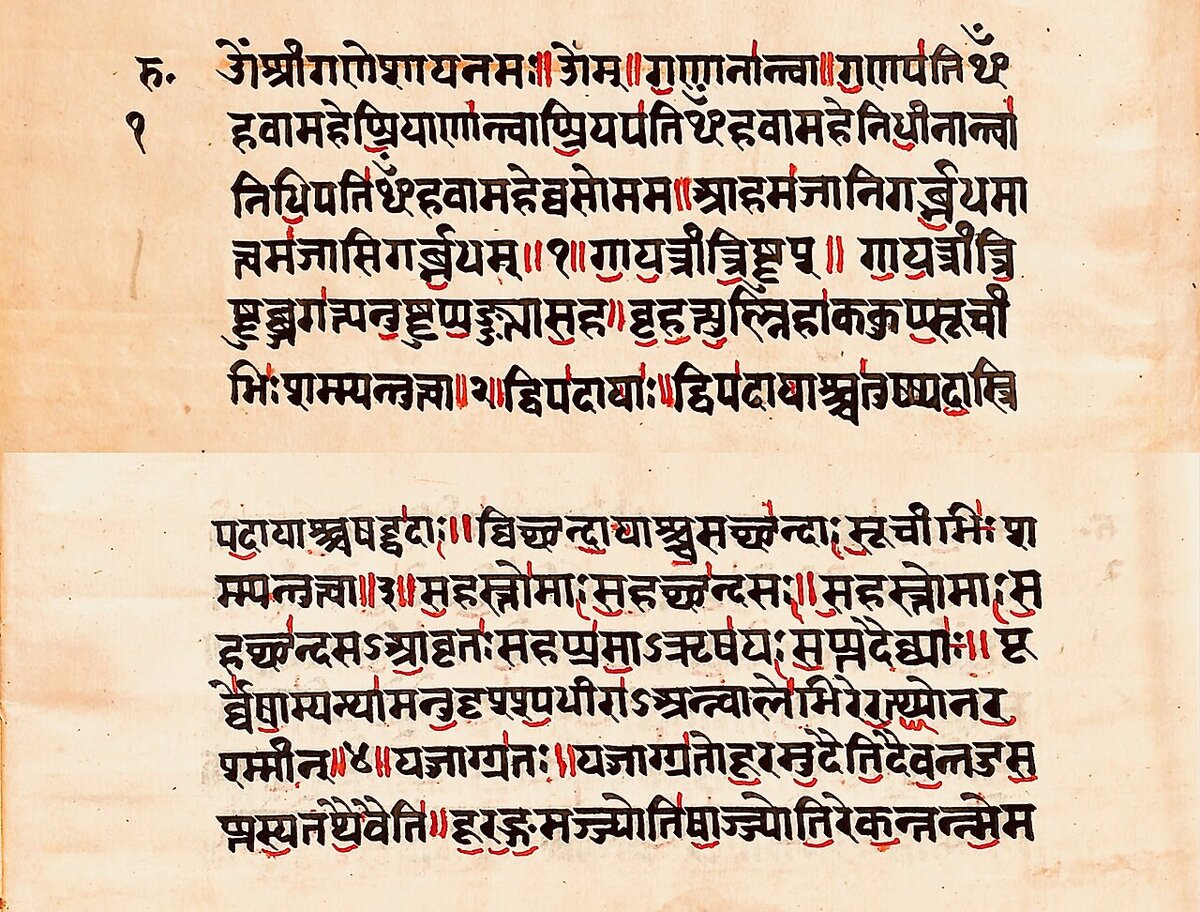 रु. ॐश्रीगणेशायनमः॥ ॐम्॥ गणानान्त्वा॥ गणपतिᳪ
१ हवामहेप्प्रियाणान्त्वाप्प्रियपतिᳪहवामहेनिधीनान्त्वा
निधिपतिᳪहवामहेव्वसोमम॥ आहमजानिगर्ब्भधमा
त्वमजासिगर्ब्भधम्॥१॥ गायत्रीत्रिष्टुप्॥ गायत्रीत्रि
ष्टुब्जगत्यनुष्टुप्पङ्क्त्यासह॥ बृहत्युष्णिहाककुप्प्सूची
भिः शम्म्यन्तुत्वा॥२॥ द्विपदायाः॥ द्विपदायाश्श्चतुष्प्पदास्त्रि
पदायाश्श्चषट्पदाः॥ विच्छन्दायाश्श्चसच्छन्दाः सूचीभिः श
म्म्यन्तुत्वा॥३॥ सहस्तोमाः सहच्छन्दसः॥ सहस्तोमाः स
हच्छन्दसऽआवृतः सहप्प्रमाऽऋषयः सप्प्तदैव्व्याः॥ पू
र्व्वेषाम्पन्थामनुदृश्श्यधीराऽअन्न्वालेभिरेरत्थ्योनर
श्म्मीन्॥४॥ यज्जाग्ग्रतः॥ यज्जाग्ग्रतोदूरमुदैतिदैवन्तदुसु
प्प्तस्यतथैवैति॥ दूरङ्गमञ्ज्योतिषाञ्ज्योतिरेकन्तन्न्मेम